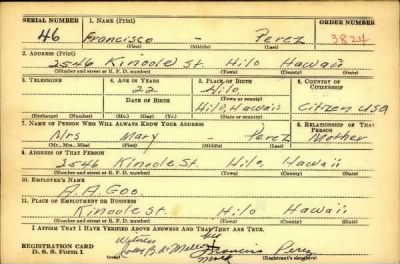 SERIAL NUMBER 1. NAME (Print) ORDER NUMBER
46 Francisco - Perez 3824
(First) (Middle) (Last)
2. ADDRESS (Print)
2546 Kinoole St. Hilo Hawaii
(Number and street or R. F. D. number) (Town) (County) (State)
3. TELEPHONE 4. AGE IN YEARS 5. PLACE OF BIRTH 6. COUNTRY OF CITIZENSHIP
22 Hilo
DATE OF BIRTH (Town or county)
Hilo, Hawaii Citizen USA
(Exchange) (Number) (Mo.) (Day) (Yr.) (State or country)
7. NAME OF PERSON WHO WILL ALWAYS KNOW YOUR ADDRESS 8. RELATIONSHIP OF THAT PERSON
Mrs Mary - Perez Mother
(Mr., Mrs., Miss) (First) (Middle) (Last)
9. ADDRESS OF THAT PERSON
2546 Kinoole St. Hilo, Hawaii
(Number and street or R. F. D. number) (Town) (County) (State)
10. EMPLOYER'S NAME
A. A. Goo
11. PLACE OF EMPLOYMENT OR BUSINESS
Kinoole St. Hilo Hawaii
(Number and street or R. F. D. number) (Town) (County) (State)
I AFFIRM THAT I HAVE VERIFIED ABOVE ANSWERS AND THAT THEY ARE TRUE.
Witness his
REGISTRATION CARD
D. S. S. Form 1 Francisco Perez
mark